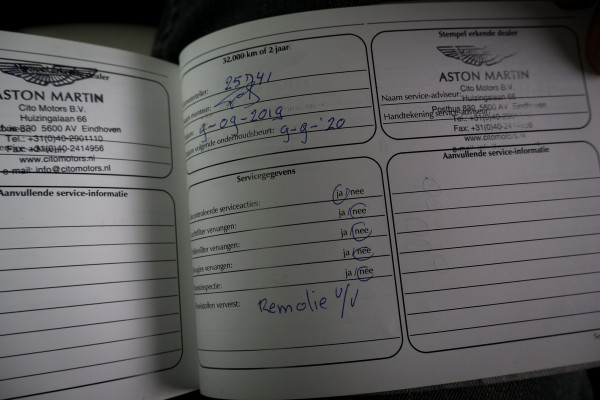 ASTON MARTIN
Cito Motors B.V.
Huizingalaan 66
5600 AV Eindhoven
Tel.: +31(0)40-2901110
Fax: +31(0)40-2414956
www.citomotors.nl
e-mail: info@citomotors.nl
Aanvullende service-informatie
32.000 km of 2 jaar
9-09-2019
volgende onderhoudsbeurt: 9-9-'20
Servicegegevens
serviceacties: ja/nee
vervangen: ja/nee
vervangen: ja/nee
vervangen: ja/nee
ja/nee
ververst: Remolie v/v
Stempel erkende dealer
ASTON MARTIN
Cito Motors B.V.
Naam service-adviseur: Huizingalaan 66
Postbus 830 5600 AV Eindhoven
Handtekening service-adviseur:
Fax: +31(0)40-2414956
www.citomotors.nl
Aanvullende service-informatie